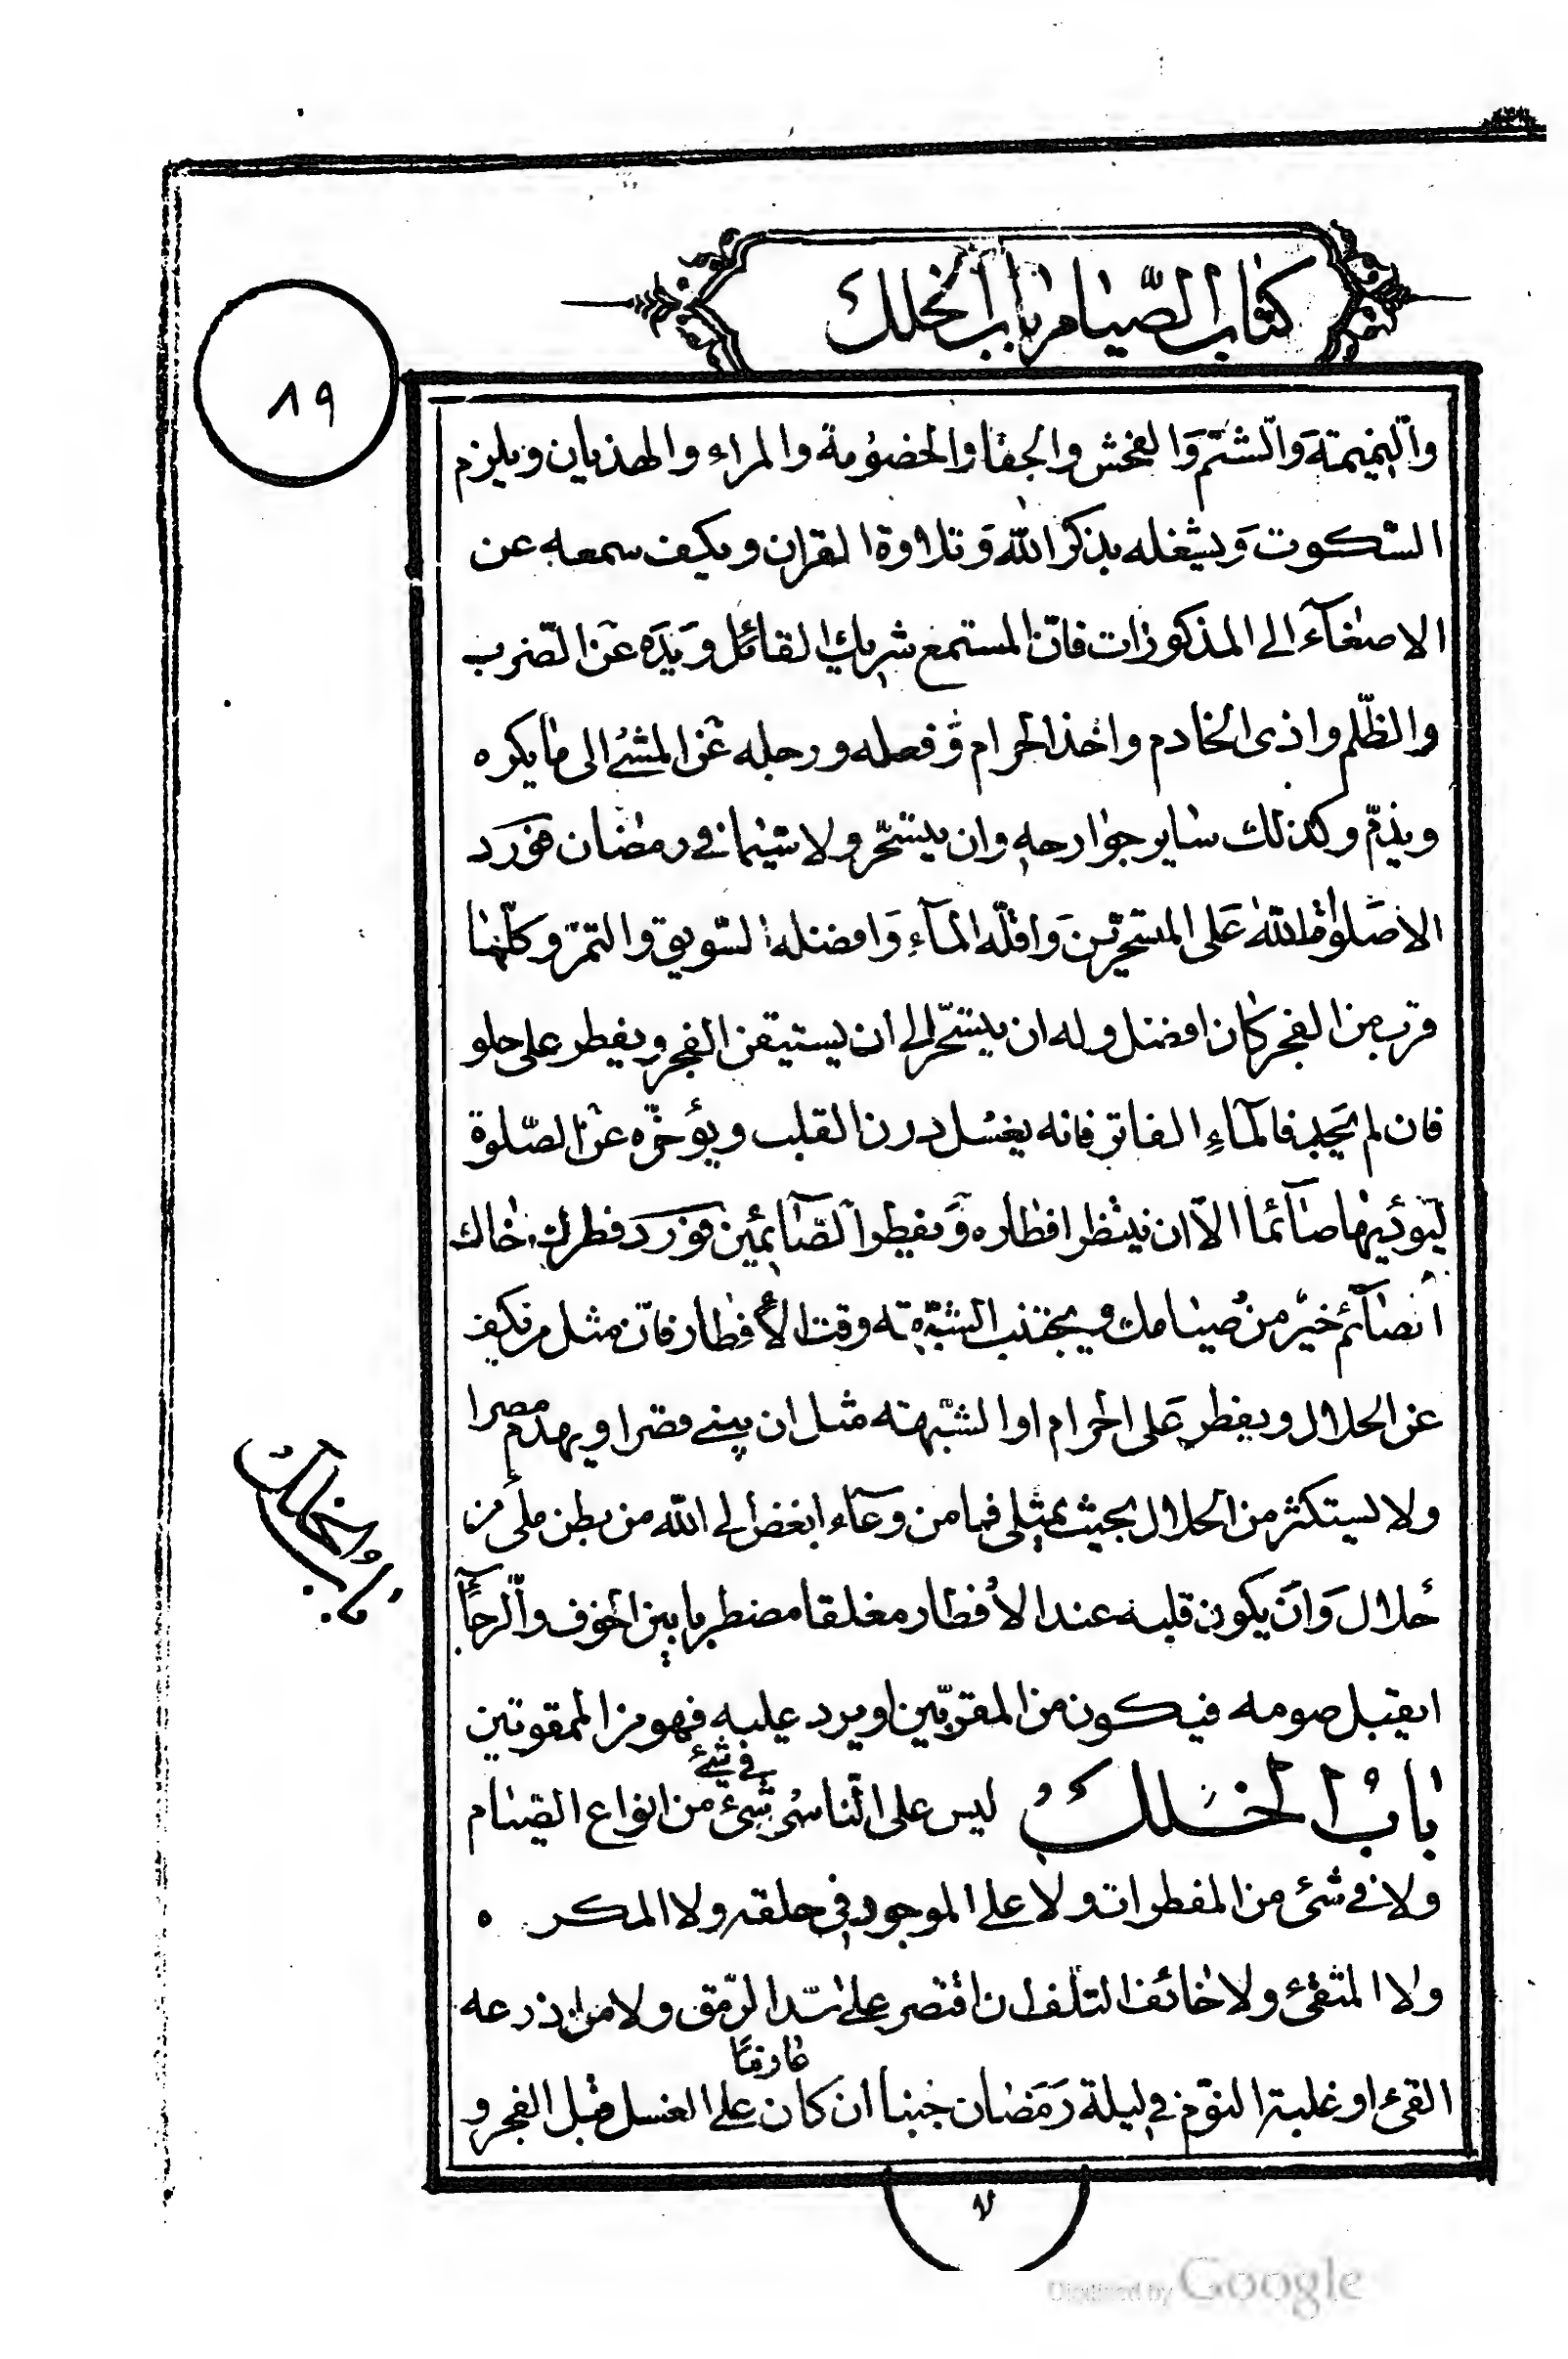 كتاب الصّيام باب الخلل
٨٩
والنّميمة وَالشّتم وَالفحش والجفا والخصومة والمراء والهذيان ويلزم
السّكوت وَيشغله بذكر اللّه وَتلاوة القران ويكف سمعه عن
الاصغآء الى المذكورات فانّ المستمع شريك القائل وَيَدَه عَن الضّرب
والظّلم واذى الخادم واخذ الحرام وَفعله ورجله عَن المشئ الى ما يكره
ويذمّ وكذلك ساير جوارحه وان يتسّحر ولا سيّما فى رمضان فورد
الا صَلوة اللّه عَلى المتسحّرين وَاقلّه المآء وَافضله السّويق والتمر وكلّما
قرب من الفجر كان افضل وله ان يتسحّر الى ان يستيقن الفجر ويفطر على حلو
فان لم يجد فالمآءِ الفاتر فانه يغسل درن القلب ويؤخّره عن الصّلوة
ليؤديها صآئما الاّ ان ينتظر افطاره وَيفطر الصّآئمين فورد فطرك اخاك
الصآئم خير من صيامك ويجتنب الشبهة وقت الأفطار فانّ مثل من يكف
عن الحلال ويفطر عَلى الحرام او الشّبهة مثل ان يبنى قصرا ويهدم مصرا
ولا يستكثر من الحلال بحيث يمتلى فما من وعآء ابغض الى اللّه من بطن ملئ من
حلال وَان يكون قلبه عند الأفطار مغلقا مضطربا بين الخوف والرجآء
ايقبل صومه فيكون من المقرّبين او يرد عليه فهو من الممقوتين
باب الخلل ليس على النّاسى شئ من انواع الصيام
فى شئ
ولا فى شئ من المفطرات ولا على الموجود فى حلقه ولا المكره
ولا المتقئ ولا خائف التلف ان اقتصر على سدّ الرّمق ولا من ذرعه
عازمًا
القئ او غلبه النّوم فى ليلة رَمَضان جنبا ان كان على الغسل قبل الفجر و
باب الخلل